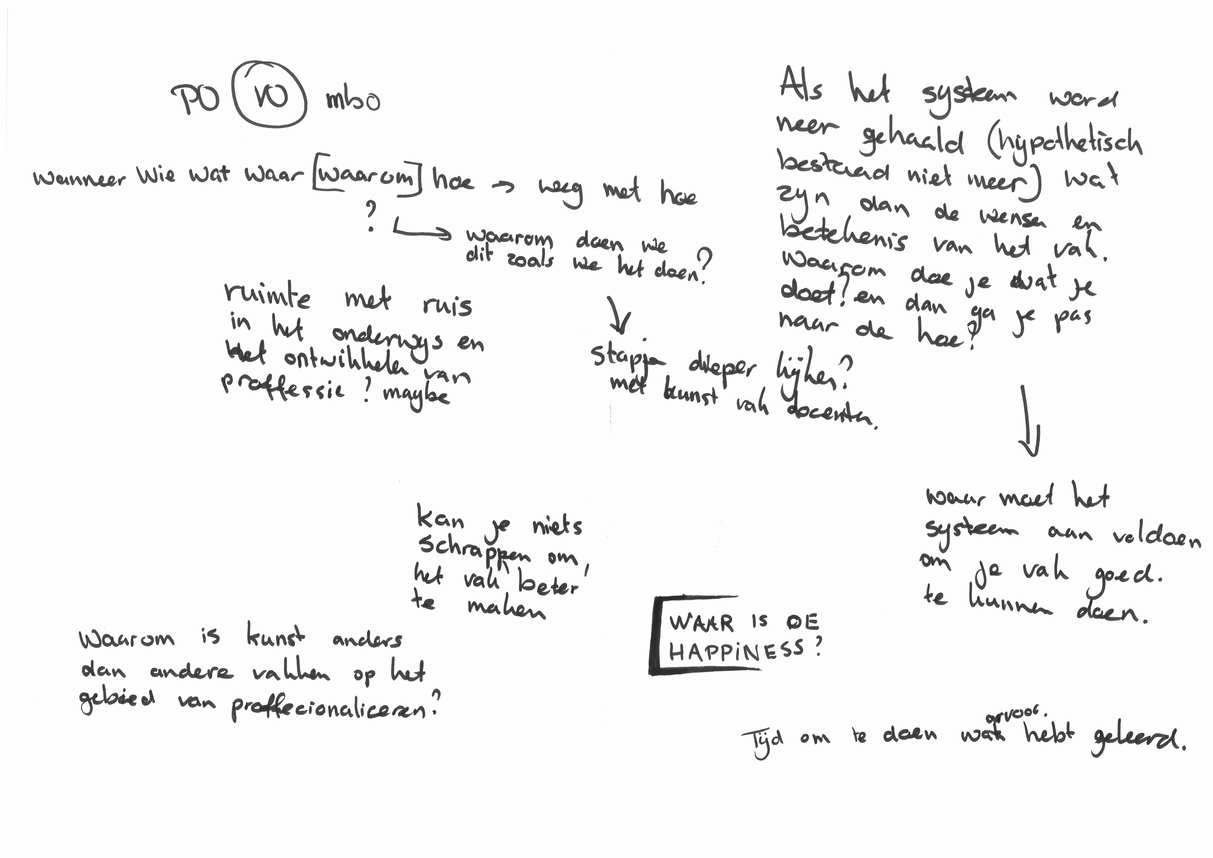 PO VO mbo
wanneer wie wat waar [waarom] hoe → weg met hoe
?
waarom doen we
dit zoals we het doen?
ruimte met ruis
in het onderwys en
het ontwikkelen van
proffessie? maybe
stapje dieper kijken?
met kunst vak docenten.
Als het systeem word
neer gehaald (hypothetisch
bestaad niet meer) wat
zyn dan de wensen en
betekenis van het vak.
Waarom doe je wat je
doet? en dan ga je pas
naar de hoe?
waar moet het
systeem aan voldoen
om je vak goed.
te kunnen doen.
kan je niets
schrappen om
het vak 'beter'
te maken
WAAR IS DE
HAPPINESS?
Waarom is kunst anders
dan andere vakken op het
gebied van proffecionaliceren?
ervoor.
Tijd om te doen wat hebt geleerd.